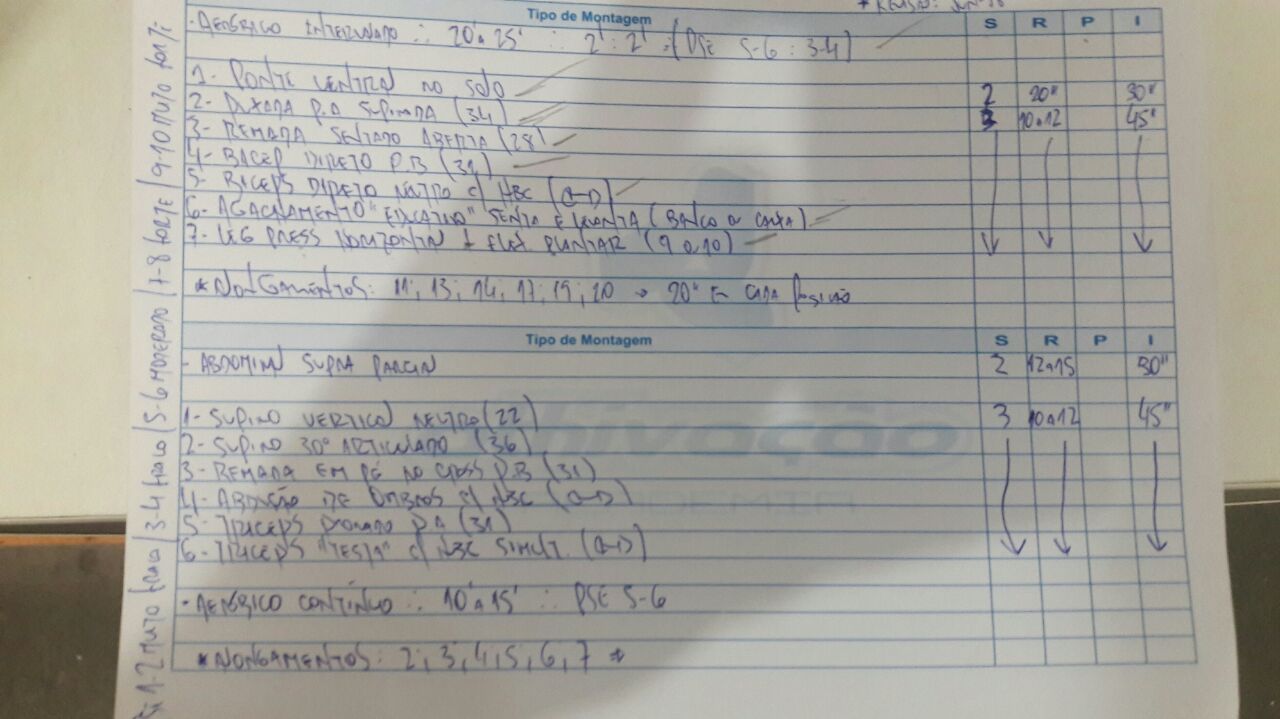 * REVISÃO: JUN-18
Tipo de Montagem S R P I
- AERÓBICO INTERVALADO :. 20' a 25' :. 2' : 2' = (PSE 5-6 : 3-4)
1- PONTE VENTRAL NO SOLO 2 20" 30"
2- PUXADA P.A SUPINADA (34) 3 10 a 12 45"
3- REMADA SENTADO ABERTA (28)
4- BICEP DIRETO P.B (31)
5- BICEPS DIRETO NEUTRO c/ HBC (A-D)
6- AGACHAMENTO "EDUCATIVO" SENTA E LEVANTA (BANCO OU CAIXA)
7- LEG PRESS HORIZONTAL + FLEX PLANTAR (9 a 10)
* ALONGAMENTOS: 11; 13; 14; 17; 19; 20 → 20" EM CADA POSIÇÃO
Tipo de Montagem S R P I
- ABDOMINAL SUPRA PARCIAL 2 12 a 15 30"
1- SUPINO VERTICAL NEUTRO (22) 3 10 a 12 45"
2- SUPINO 30° ARTICULADO (36)
3- REMADA EM PÉ NO CROSS P.B (31)
4- ABDUÇÃO DE OMBROS c/ HBC (A-D)
5- TRICEPS PRONADO P.A (31)
6- TRICEPS "TESTA" c/ HBC SIMULT. (A-D)
- AERÓBICO CONTÍNUO :. 10' a 15' :. PSE 5-6
* ALONGAMENTOS: 2; 3; 4; 5; 6; 7 →
1-2 MUITO FRACO | 3-4 FRACO | 5-6 MODERADO | 7-8 FORTE | 9-10 MUITO FORTE